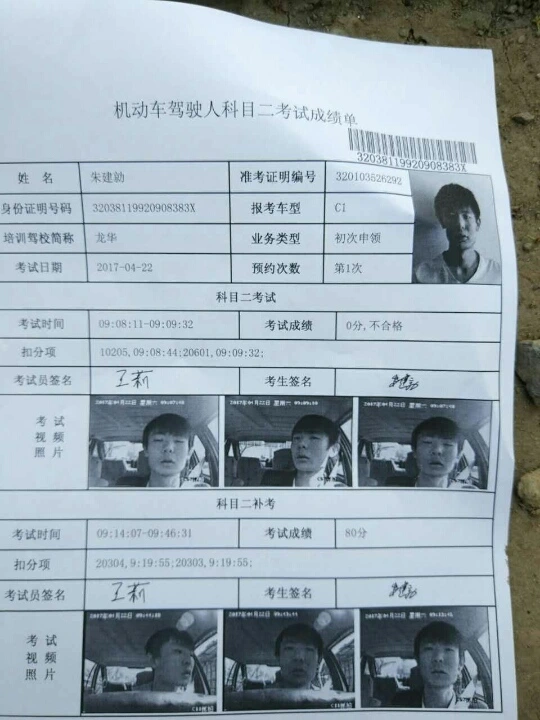 机动车驾驶人科目二考试成绩单
32038119920908383X
姓 名 朱建勋 准考证明编号 320103526292
身份证明号码 32038119920908383X 报考车型 C1
培训驾校简称 龙华 业务类型 初次申领
考试日期 2017-04-22 预约次数 第1次
科目二考试
考试时间 09:08:11-09:09:32 考试成绩 0分,不合格
扣分项 10205,09:08:44;20601,09:09:32;
考试员签名 王莉 考生签名
考 试
视 频
照 片
科目二补考
考试时间 09:14:07-09:46:31 考试成绩 80分
扣分项 20304,9:19:55;20303,9:19:55;
考试员签名 王莉 考生签名
考 试
视 频
照 片